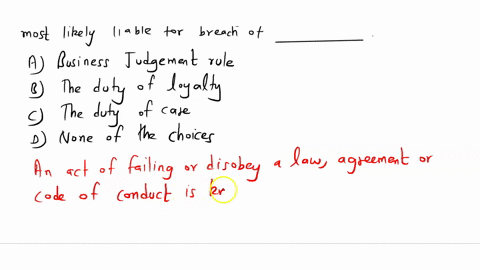 most likely liable for breach of ________ .
A) Business Judgement rule
B) The duty of loyalty
C) The duty of case
D) None of the choices
An act of failing or disobey a law, agreement or
code of conduct is